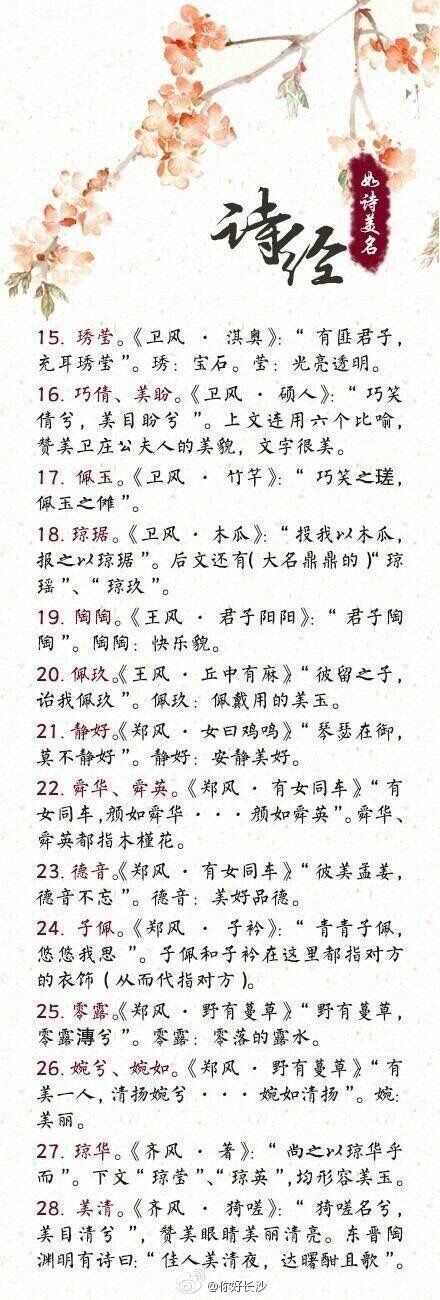 诗经
如诗美名
15. 琇莹。《卫风 · 淇奥》：“有匪君子，
充耳琇莹”。琇：宝石。莹：光亮透明。
16. 巧倩、美盼。《卫风 · 硕人》：“巧笑
倩兮，美目盼兮 ”。上文连用六个比喻，
赞美卫庄公夫人的美貌，文字很美。
17. 佩玉。《卫风 · 竹竿》：“ 巧笑之瑳，
佩玉之傩”。
18. 琼琚。《卫风 · 木瓜》：“投我以木瓜，
报之以琼琚”。后文还有（大名鼎鼎的）“琼
瑶”、“琼玖”。
19. 陶陶。《王风 · 君子阳阳》：“君子陶
陶”。陶陶：快乐貌。
20. 佩玖。《王风 · 丘中有麻》“彼留之子，
诒我佩玖”。佩玖：佩戴用的美玉。
21. 静好。《郑风 · 女曰鸡鸣》：“琴瑟在御，
莫不静好”。静好：安静美好。
22. 舜华、舜英。《郑风 · 有女同车》“有
女同车，颜如舜华 · · · 颜如舜英”。舜华、
舜英都指木槿花。
23. 德音。《郑风 · 有女同车》“彼美孟姜，
德音不忘”。德音：美好品德。
24. 子佩。《郑风 · 子衿》：“ 青青子佩，
悠悠我思 ”。子佩和子衿在这里都指对方
的衣饰（从而代指对方）。
25. 零露。《郑风 · 野有蔓草》“野有蔓草，
零露漙兮”。零露：零落的露水。
26. 婉兮、婉如。《郑风 · 野有蔓草》“有
美一人，清扬婉兮 · · · 婉如清扬”。婉：
美丽。
27. 琼华。《齐风 · 著》：“ 尚之以琼华乎
而”。下文“琼莹”、“琼英”，均形容美玉。
28. 美清。《齐风 · 猗嗟》：“ 猗嗟名兮，
美目清兮”，赞美眼睛美丽清亮。东晋陶
渊明有诗曰：“佳人美清夜，达曙酣且歌”。
@你好长沙